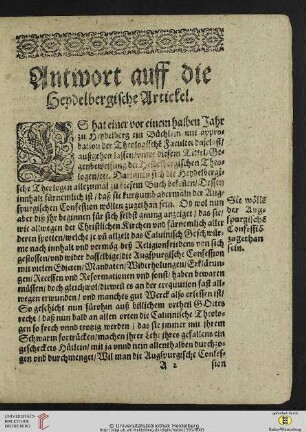 Antwort auff die
Heydelbergische Artickel.
ES hat einer vor einem halben Jahr
zu Heydelberg ein Büchlein mit appro-
bation der Theologischen Facultet daselbst/
außgehen lassen/unter diesem Tittel/Ge-
der Heydelbergischen Theo-
logen/etc. Darinnen sich die Heydelbergi-
sche Theologen allezumal zu diesem Buch bekennen/Dessen
innhalt fürnemlich ist/daß sie kurtzumb abermals der Aug-
spurgischen Confession wöllen zugethan sein. Ob nun wol
aber diß ihr beginnen für sich selbst gnung anzeiget/das sie/
wie allwegen der Christlichen Kirchen und fürnemlich aller
deren spotten/welche je und alzeit das Caluinisch Geschwür-
me nach innhalt und vermög deß Religionfriedens von sich
gestossen/und wider dasselbige/die Augspurgische Confession
mit vielen Edicten/Mandaten/Widerholungen/Erklärun-
gen/Recessen und Reformationen und sonst/haben bewaren
müssen/doch gleichwol/dieweil es an der execution fast all-
wegen erwunden/und manches gut Werck also ersessen ist/
So geschicht nun fürohin auß billichem urtheil GOttes
recht/daß nun bald an allen orten die Caluinische Theolo-
gen so frech unnd trotzig werden/das sie jmmer mit ihrem
Schwarm fortrücken/machen ihrer Lehr ihres gefallens ein
geschecktes Hütlein/mit ja unnd nein allenthalben durchzo-
gen und durchmenget/Wil man die Augspurgische Confes-
A 2 sion
Sie wölle
der Aug-
spurgische
Confessiō
zugethan
sein.
UNIVERSITÄTS-
BIBLIOTHEK
HEIDELBERG
© Universitätsbibliothek Heidelberg
Baden-Württemberg